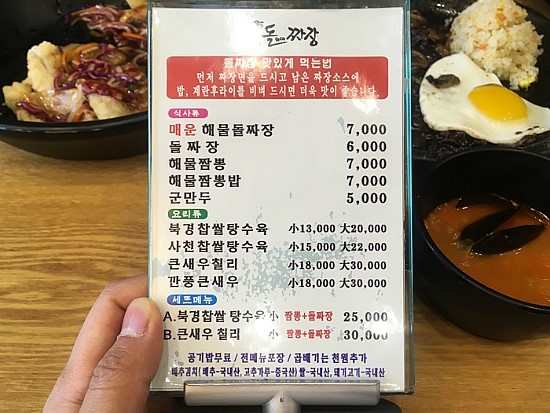 돌짜장
돌짜장 맛있게 먹는법
먼저 짜장면을 드시고 남은 짜장소스에
밥, 계란후라이를 비벼 드시면 더욱 맛이 좋습니다.
식사류
매운 해물돌짜장 7,000
돌 짜 장 6,000
해물짬뽕 7,000
해물짬뽕밥 7,000
군만두 5,000
요리류
북경찹쌀탕수육 小13,000 大20,000
사천찹쌀탕수육 小15,000 大22,000
큰새우칠리 小18,000 大30,000
깐풍큰새우 小18,000 大30,000
세트메뉴
A.북경찹쌀 탕수육小 짬뽕+돌짜장 25,000
B.큰새우 칠리 小 짬뽕+돌짜장 30,000
공기밥무료 / 전메뉴포장 / 곱배기는 천원추가
배추김치( 배추-국내산, 고추가루-중국산) 쌀-국내산, 돼기고기-국내산